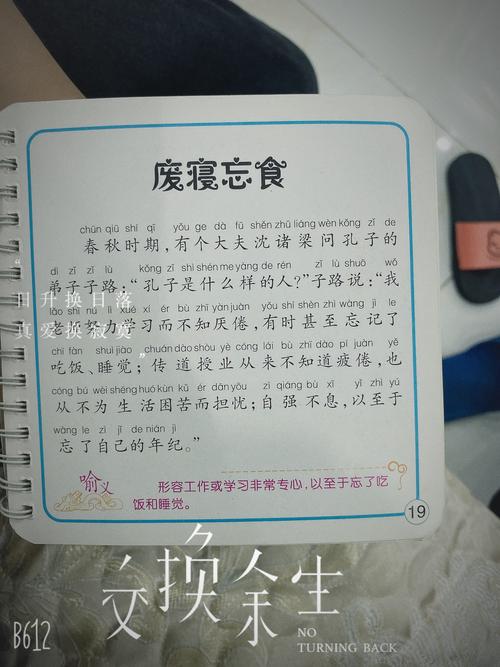 废寝忘食
chūn qiū shí qī yǒu ge dà fū shěn zhū liáng wèn kǒng zǐ de
春秋时期，有个大夫沈诸梁问孔子的
dì zǐ zǐ lù kǒng zǐ shì shén me yàng de rén zǐ lù shuō wǒ
弟子子路：“孔子是什么样的人？”子路说：“我
lǎo shī nǔ lì xué xí ér bù zhī yàn juàn yǒu shí shèn zhì wàng jì le
老师努力学习而不知厌倦，有时甚至忘记了
chī fàn shuì jiào chuán dào shòu yè cóng lái bù zhī dào pí juàn yě
吃饭、睡觉；传道授业从来不知道疲倦，也
cóng bù wèi shēng huó kùn kǔ ér dān yōu zì qiáng bù xī yǐ zhì yú
从不为生活困苦而担忧；自强不息，以至于
wàng le zì jǐ de nián jì
忘了自己的年纪。”
喻义
形容工作或学习非常专心，以至于忘了吃
饭和睡觉。
19
“
日升换日落
真爱换寂寞
”
交换余生
NO
TURNING BACK
B612